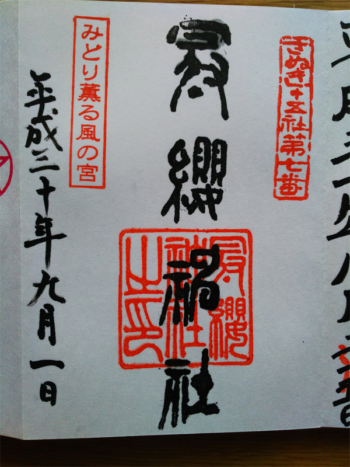 さぬき十五社第七番
冠纓神社
冠纓神社之印
みどり薫る風の宮
平成三十年九月一日